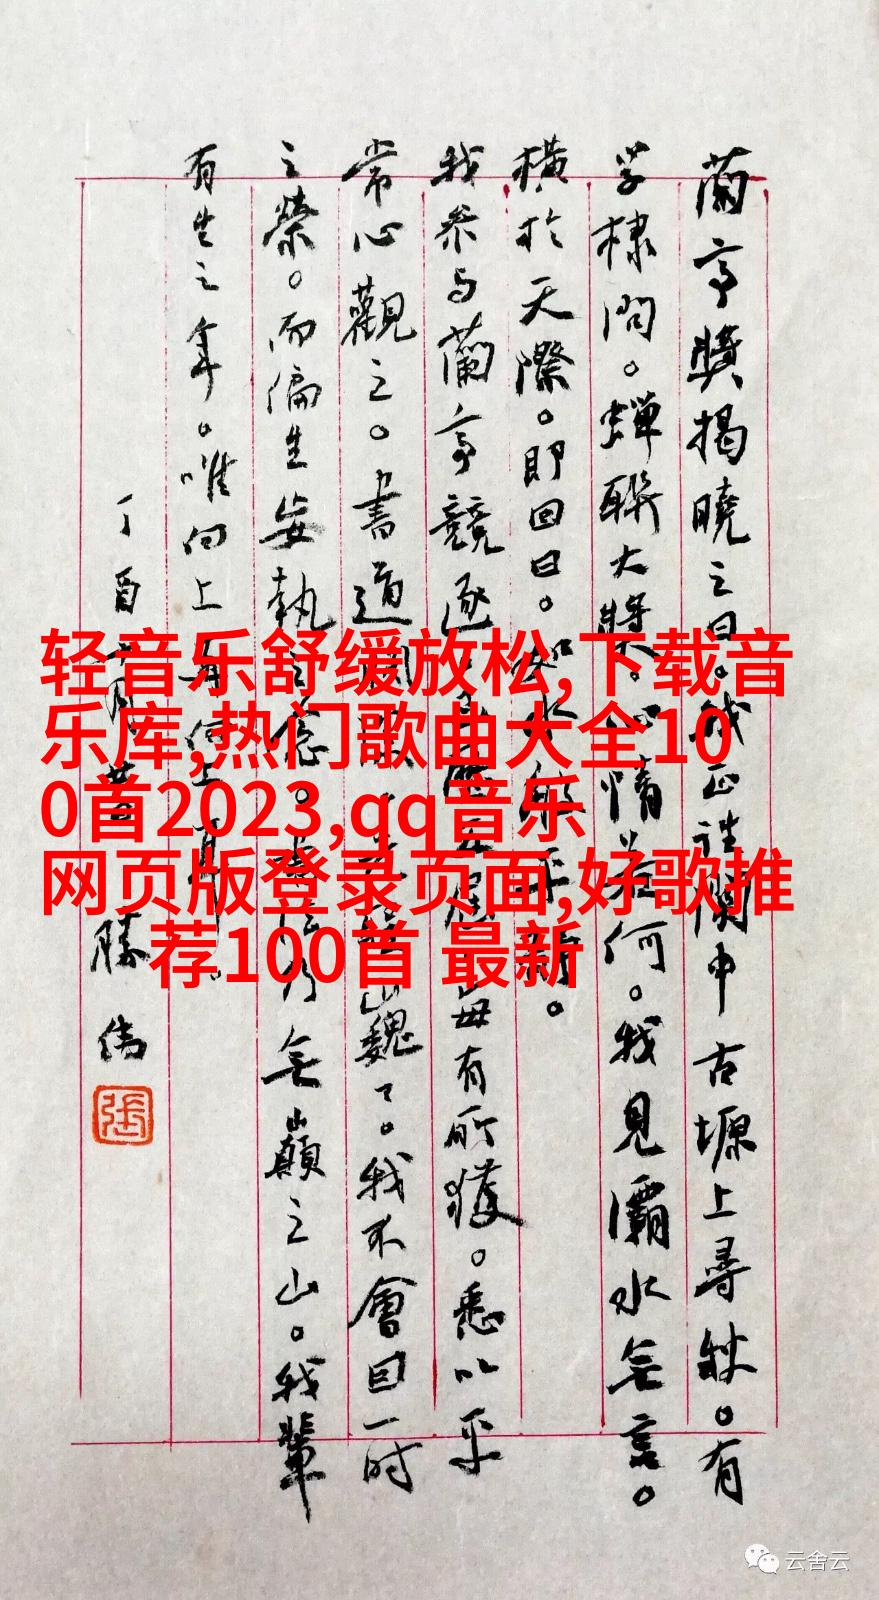 蘭亭獎揭曉之日。我正關中古塬上尋秋。有
学棣問。蟬聯大獎。心情若何。我見灞水無言。
橫於天際。即回曰。如水般平
我参与蘭亭競逐每有所獲。悉以平
常心觀之。書道巍了。我不會因一时
之榮。而偏生妄執念。乃無巔之山。我輩
有生之年。唯向上再向上
丁酉
勝偉
張
轻音乐舒缓放松,下载音
乐库,热门歌曲大全10
0首2023,qq音乐
网页版登录页面,好歌推
荐100首 最新
云舍云